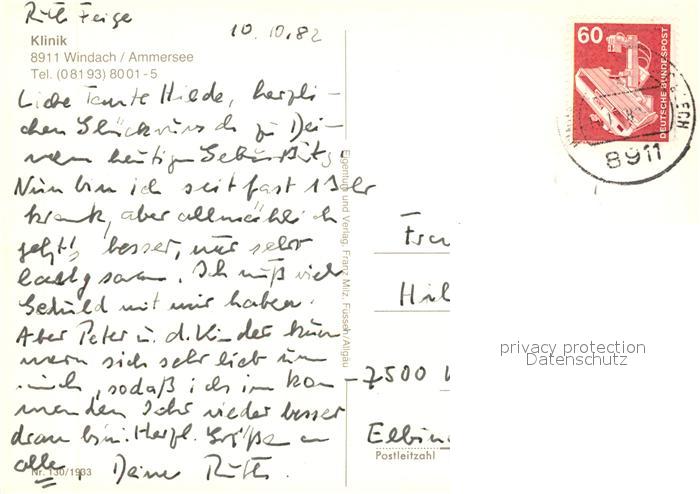 Ruth Feige
10.10.82
Klinik
8911 Windach / Ammersee
Tel. (08193) 8001-5
Liebe Tante Hilde, herzli-
chen Glückwunsch zu Dei-
nem heutigen Geburtstag.
Nun bin ich seit fast 1 Jahr
krank, aber allmählich
geht's besser, nur sehr
langsam. Ich muß viel
Geduld mit mir haben.
Aber Peter u. d. Kinder küm
mern sich sehr lieb um
mich, sodaß ich im kom-
menden Jahr wieder besser
dran bin. Herzl. Grüße an
alle Deine Ruth.
Nr. 130/1933
Eigentum und Verlag, Franz Milz, Füssen/Allgäu
60
DEUTSCHE BUNDESPOST
8911
Frau
Hil
7500
Elbin
Postleitzahl
privacy protection
Datenschutz